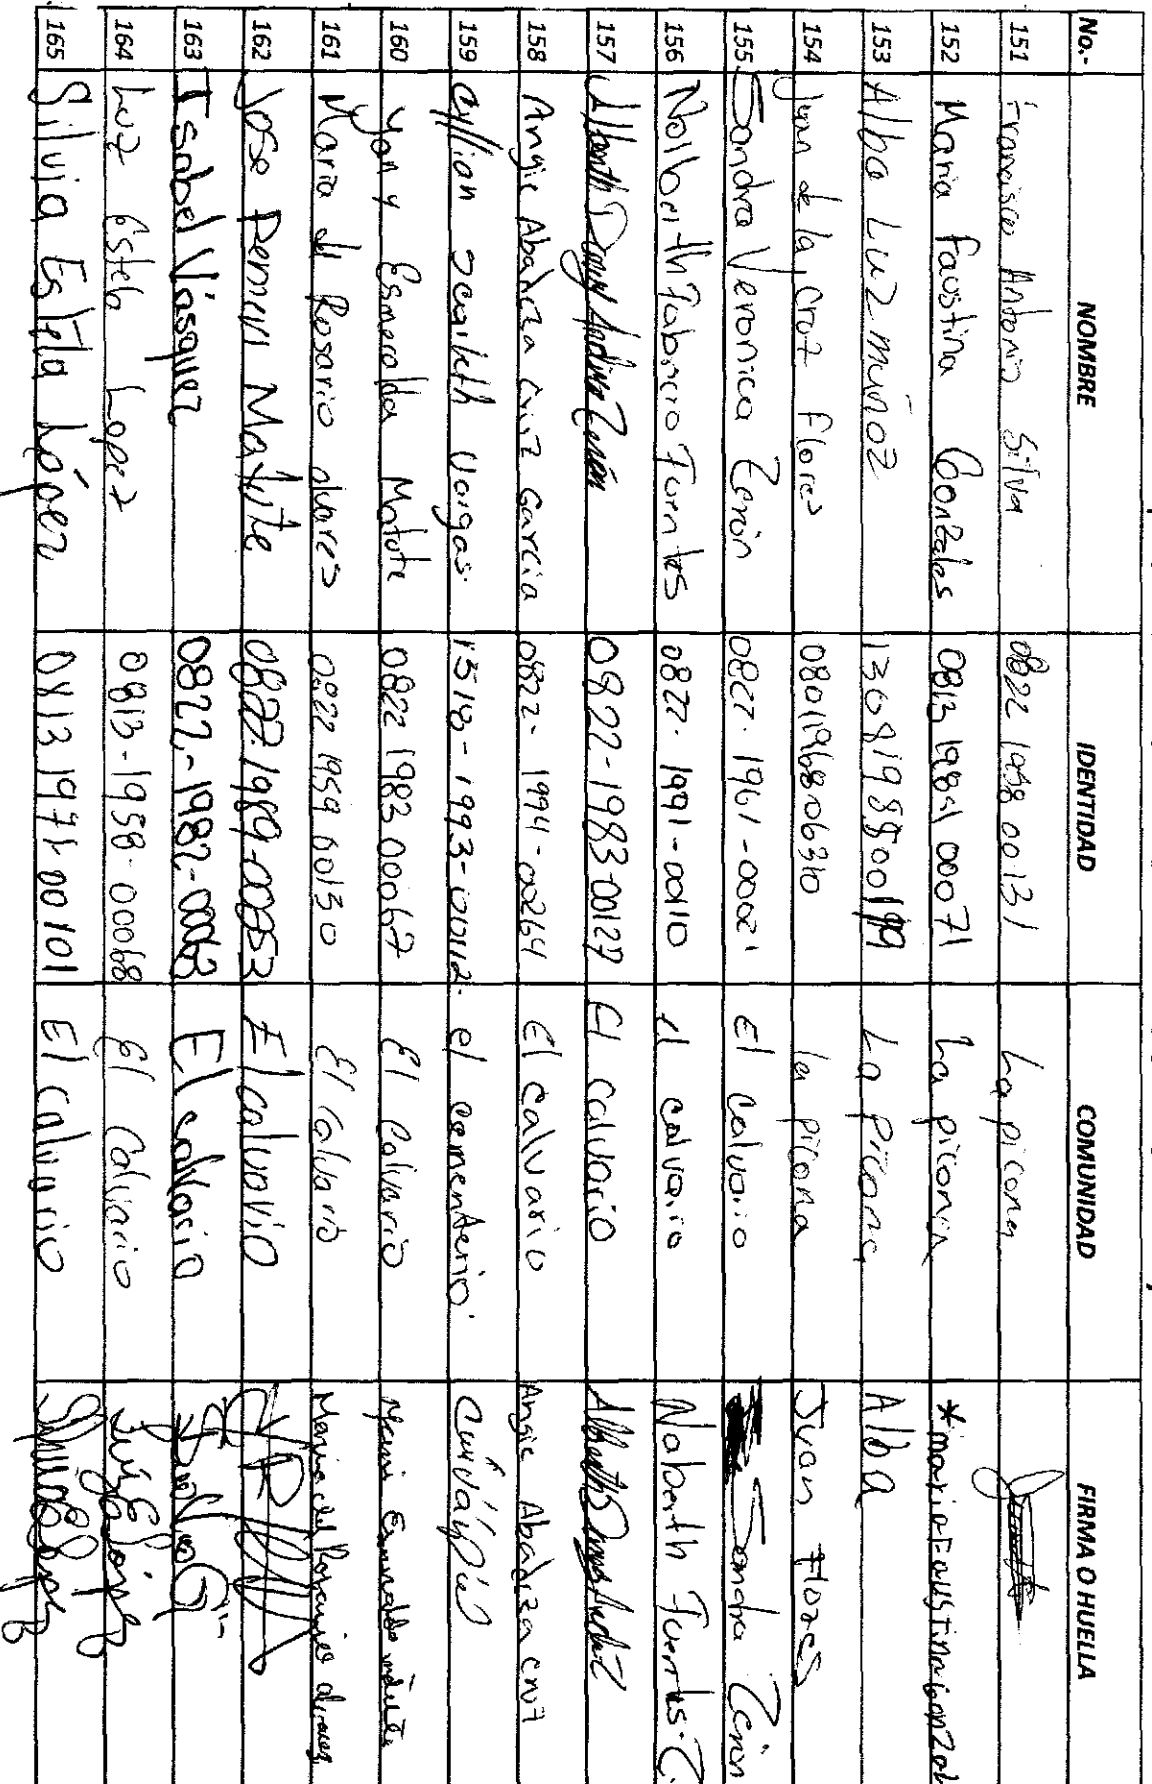 No.- NOMBRE IDENTIDAD COMUNIDAD FIRMA O HUELLA
151 Francisco Antonio Silva 0822 1958 00131 La picona
152 Maria Faustina Gonzales 0813 1984 00071 La picona *maria Faustina Gonzal
153 Alba Luz muñoz 1309198800199 La Picona Alba
154 Juan de la Cruz Flores 0801196806310 la picona Juan Flores
155 Sandra Veronica Zerón 0822-1961-00021 El calvario Sandra Zerón
156 Nolberth Fabricio Fuentes 0822-1991-00110 el calvario Nolberth Fuentes Z.
157 0822-1983-00127 El calvario
158 Angie Abadiza Cruz Garcia 0822-1994-00264 El calvario Angie Abadiza cruz
159 scarleth Vargas 1518-1993-00112. el cementerio.
160 Esmeralda Matute 0822 1983 00067 El calvario Esmeralda matute
161 Maria del Rosario alvares 0822 1959 00130 El Calvario Maria del Rosario alvares
162 Jose Matute 0822-1989-00053 El calvario
163 Isabel Vasquez 0822-1982-00063 El calvario
164 Luz Estela Lopez 0813-1958-00068 El Calvario
165 Silvia Estela López 0813 1971-00101 El calvario